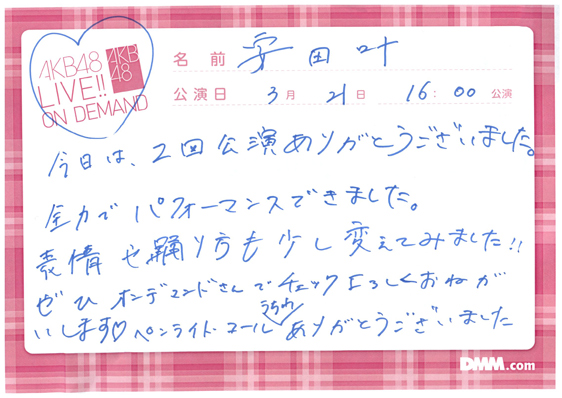 AKB48
LIVE!!
ON DEMAND
AKB
48
名前 安田叶
公演日 3月21日 16:00 公演
今日は、2回公演ありがとうございました。
全力でパフォーマンスできました。
表情や踊り方も少し変えてみました!!
ぜひオンデマンドさんでチェックよろしくおねが
いします♡ペンライト・コール うちわ ありがとうございました
DMM.com